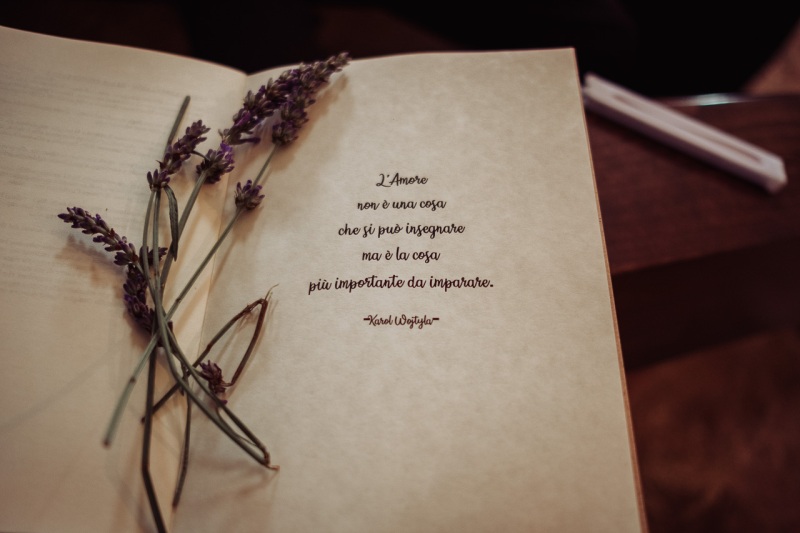 L'Amore
non è una cosa
che si può insegnare
ma è la cosa
più importante da imparare.
-Karol Wojtyla-